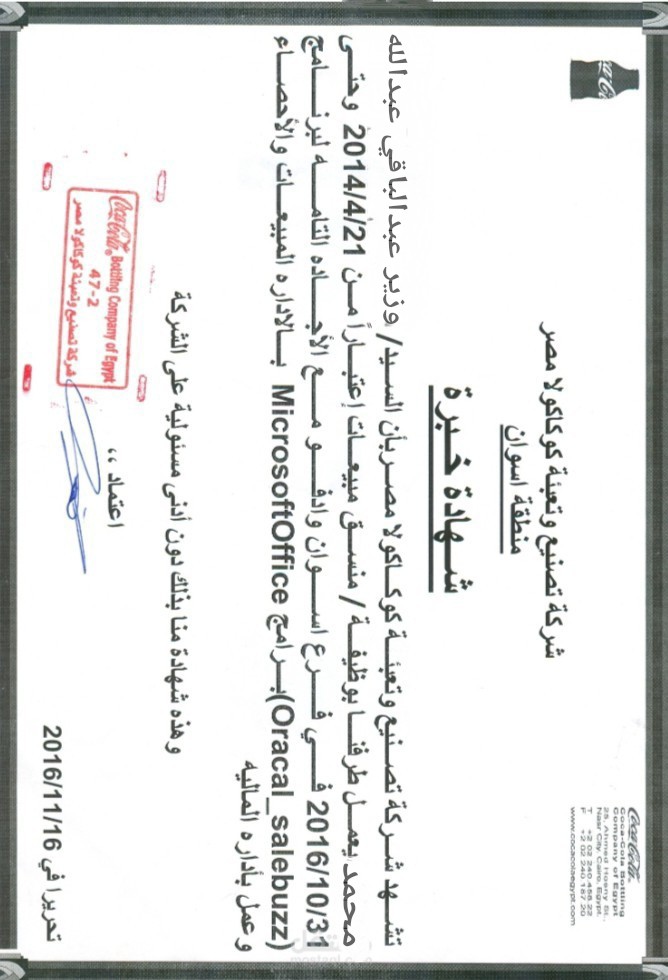 Coca-Cola
Coca-Cola Bottling
Company of Egypt
25, Ahmed Hosny St.,
Nasr City, Cairo, Egypt.
T +2 02 240 458 22
F +2 02 240 187 20
www.cocacolaegypt.com
شركة تصنيع وتعبئة كوكاكولا مصر
منطقة اسوان
شهادة خبرة
تشهد شركة تصنيع وتعبئة كوكاكولا مصر بأن السيد/ وزير عبدالباقي عبدالله
محمد يعمل طرفنا بوظيفة / منسق مبيعات إعتباراً من 2014/4/21 وحتى
2016/10/31 في فرع اسوان وادفو مع الأجاده التامه لبرنامج
(Oracal_salebuzz) برامج MicrosoftOffice بالاداره المبيعات والأحصاء
وعمل بأداره الماليه
وهذه شهادة منا بذلك دون أدنى مسئولية على الشركة
اعتماد ،،
Coca-Cola Bottling Company of Egypt
47-2
شركة تصنيع وتعبئة كوكاكولا مصر
تحريرا في 2016/11/16